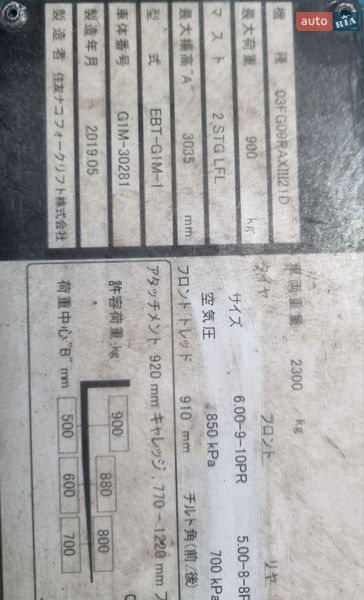 auto
RIA
機種 03FG09PAXⅢ21D
最大荷重 900 kg
マスト 2 STG LFL
最大揚高"A" 3035 mm
型式 EBT-G1M-1
車体番号 G1M-30281
製造年月 2019.05
製造者 住友ナコフォークリフト株式会社
車両重量 2300 kg
タイヤ フロント リヤ
サイズ 6.00-9-10PR 5.00-8-8P
空気圧 850 kPa 700 kPa
フロントトレッド 910 mm チルト角(前/後)
アタッチメント 920 mm キャレッジ, 770-1220 mm フ
許容荷重 kg 900 880 800
荷重中心"B" mm 500 600 700